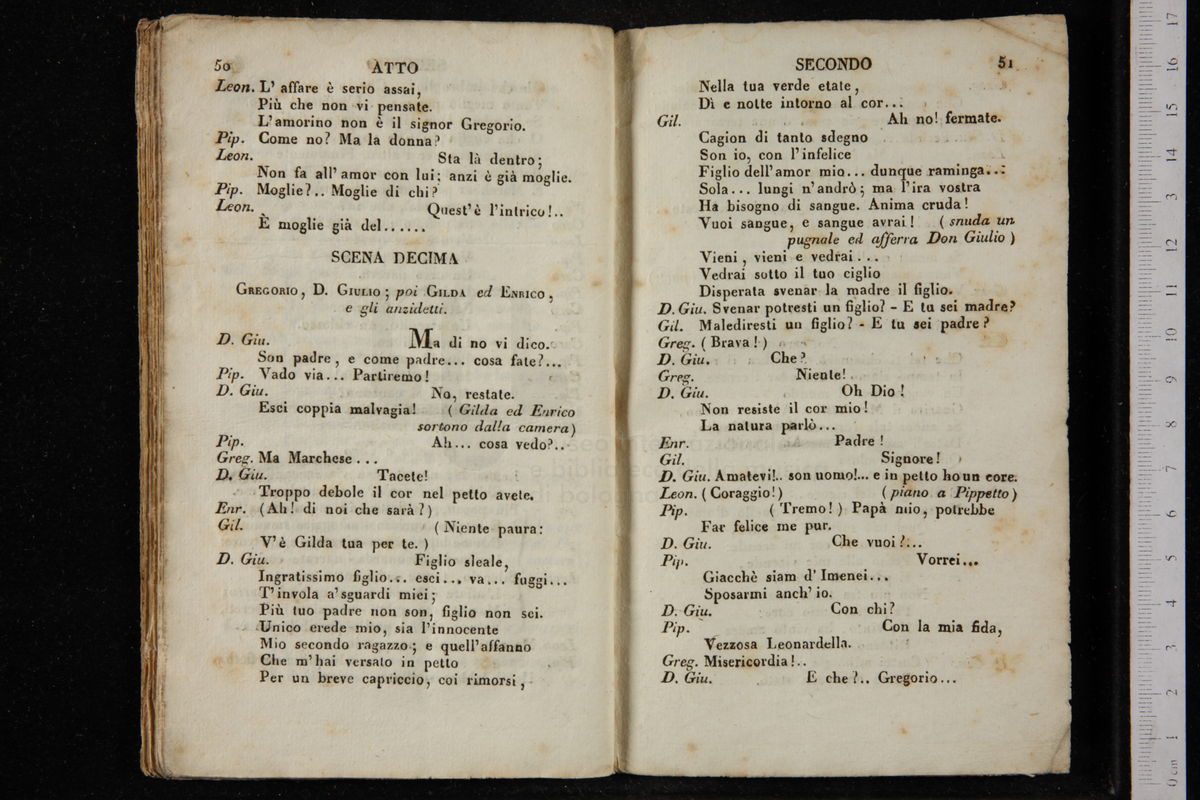 50
ATTO
Leon. L' affare è serio assai,
Più che non vi pensate.
L'amorino non è il signor Gregorio.
Pip. Come no? Ma la donna?
Leon. Sta là dentro;
Non fa all' amor con lui; anzi è già moglie.
Pip. Moglie?.. Moglie di chi?
Leon. Quest'è l'intrico!..
È moglie già del......
SCENA DECIMA
GREGORIO, D. GIULIO; poi GILDA ed ENRICO,
e gli anzidetti.
D. Giu. Ma di no vi dico.
Son padre, e come padre... cosa fate?...
Pip. Vado via... Partiremo!
D. Giu. No, restate.
Esci coppia malvagia! (Gilda ed Enrico
sortono dalla camera)
Pip. Ah... cosa vedo?..
Greg. Ma Marchese...
D. Giu. Tacete!
Troppo debole il cor nel petto avete.
Enr. (Ah! di noi che sarà?)
Gil. (Niente paura:
V'è Gilda tua per te.)
D. Giu. Figlio sleale,
Ingratissimo figlio... esci... va... fuggi...
T'invola a'sguardi miei;
Più tuo padre non son, figlio non sei.
Unico erede mio, sia l'innocente
Mio secondo ragazzo; e quell'affanno
Che m'hai versato in petto
Per un breve capriccio, coi rimorsi,
SECONDO
51
Nella tua verde etate,
Dì e notte intorno al cor...
Gil. Ah no! fermate.
Cagion di tanto sdegno
Son io, con l'infelice
Figlio dell'amor mio... dunque raminga...
Sola... lungi n'andrò; ma l'ira vostra
Ha bisogno di sangue. Anima cruda!
Vuoi sangue, e sangue avrai! (snuda un
pugnale ed afferra Don Giulio)
Vieni, vieni e vedrai...
Vedrai sotto il tuo ciglio
Disperata svenar la madre il figlio.
D. Giu. Svenar potresti un figlio? - E tu sei madre?
Gil. Malediresti un figlio? - E tu sei padre?
Greg. (Brava!)
D. Giu. Che?
Greg. Niente!
D. Giu. Oh Dio!
Non resiste il cor mio!
La natura parlò...
Enr. Padre!
Gil. Signore!
D. Giu. Amatevi!.. son uomo!... e in petto ho un core.
Leon. (Coraggio!) (piano a Pippetto)
Pip. (Tremo!) Papà mio, potrebbe
Far felice me pur.
D. Giu. Che vuoi?...
Pip. Vorrei...
Giacchè siam d'Imenei...
Sposarmi anch'io.
D. Giu. Con chi?
Pip. Con la mia fida,
Vezzosa Leonardella.
Greg. Misericordia!..
D. Giu. E che?.. Gregorio...